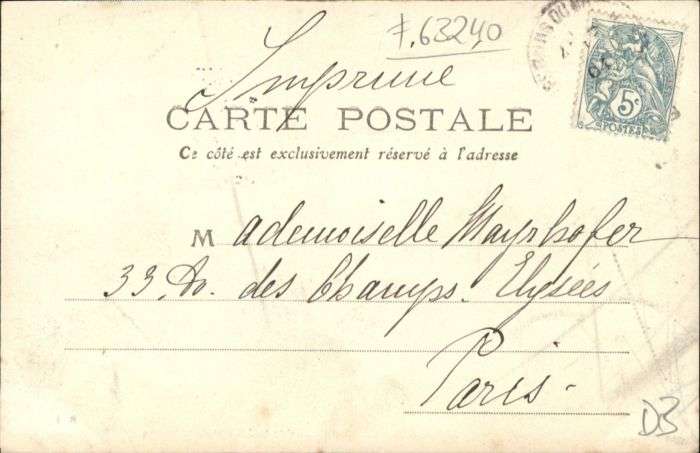 F.63240
Imprimé
CARTE POSTALE
Ce côté est exclusivement réservé à l'adresse
5c
POSTES
Mademoiselle Mayrhofer
33. Av. des Champs. Elysées
Paris-
D3